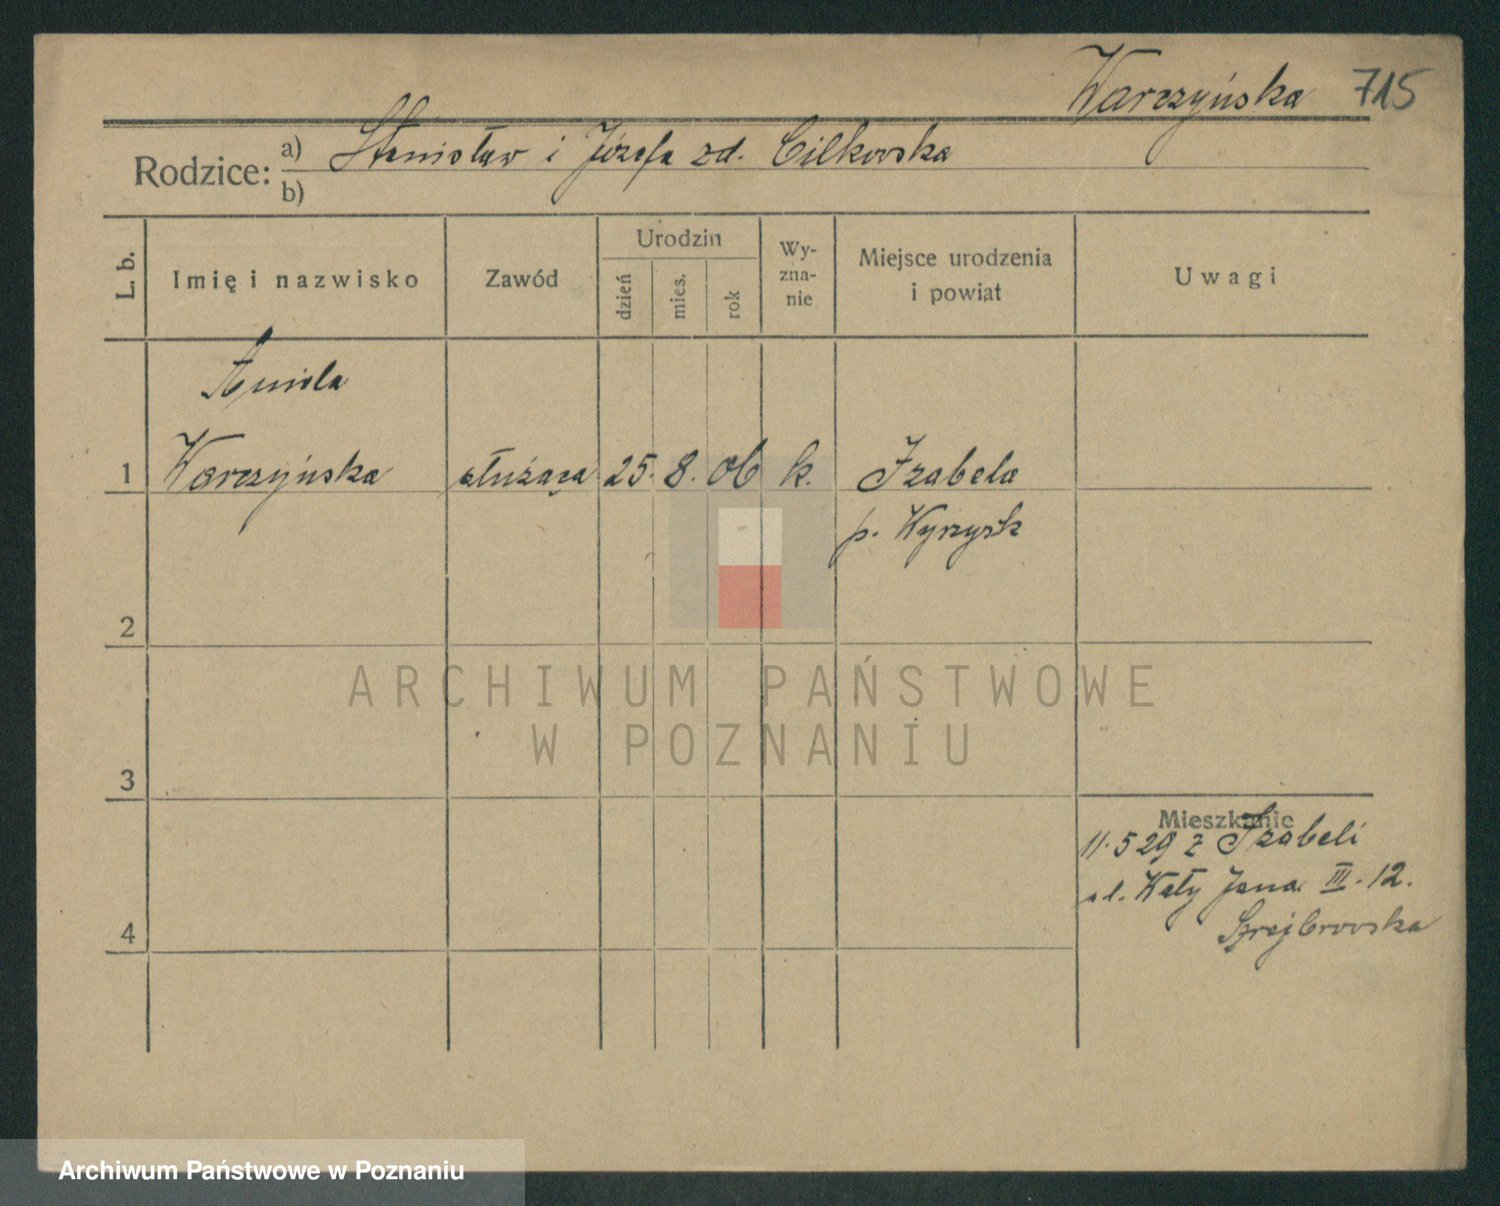 Warczyńska 715
Rodzice: a) Stanisław i Józefa zd. Cilkowska
b)
L. b. Imię i nazwisko Zawód Urodzin dzień mies. rok Wy-zna-nie Miejsce urodzenia i powiat Uwagi
Aniela
1 Warczyńska służąca 25. 8. 06 k. Izabela
p. Wyrzysk
2
ARCHIWUM PAŃSTWOWE
W POZNANIU
3
Mieszkanie
11.5 29 z Izabeli
ul. Wały Jana III. 12.
4
Archiwum Państwowe w Poznaniu